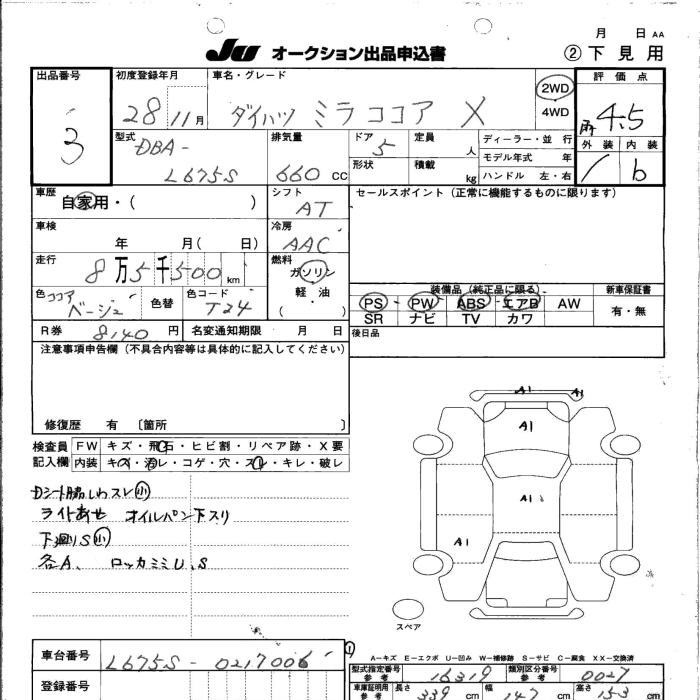 月 日 AA
JU オークション出品申込書 ② 下見用
出品番号 初度登録年月 車名・グレード 2WD 評価点
3 28 11月 ダイハツ ミラココア X 4WD 4.5
型式 排気量 ドア 定員 ディーラー・並行 外装 内装
DBA- 5 人 モデル年式 年
L675S 660 CC 形状 積載 kg ハンドル 左・右 / b
車歴 シフト セールスポイント(正常に機能するものに限ります)
自家用・( ) AT
車検 冷房
年 月( 日) AAC
走行 燃料
8万5千500km ガソリン
軽油・( )
色 ココアベージュ 色替 色コード T24
装備品(純正品に限る) 新車保証書
PS PW ABS エアB AW 有・無
SR ナビ TV カワ
R券 8140円 名変通知期限 月 日 後日品
注意事項申告欄(不具合内容等は具体的に記入してください)
修復歴 有 〔箇所 〕
検査員 FW キズ・飛石・ヒビ割・リペア跡・X要
記入欄 内装 キズ・汚レ・コゲ・穴・スレ・キレ・破レ
Dシート脇しわスレ小
ライトあせ オイルパン下スリ
下廻りS小
各A、ロッカミミU、S
A1 A1
A1
A1
A1
スペア
A-キズ E-エクボ U-凹み W-補修跡 S-サビ C-腐食 XX-交換済
車台番号 L675S-0217006 ①
型式指定番号 参考 16319 類別区分番号 参考 0027
登録番号 車庫証明用 参考 長さ 339 cm 幅 147 cm 高さ 153 cm